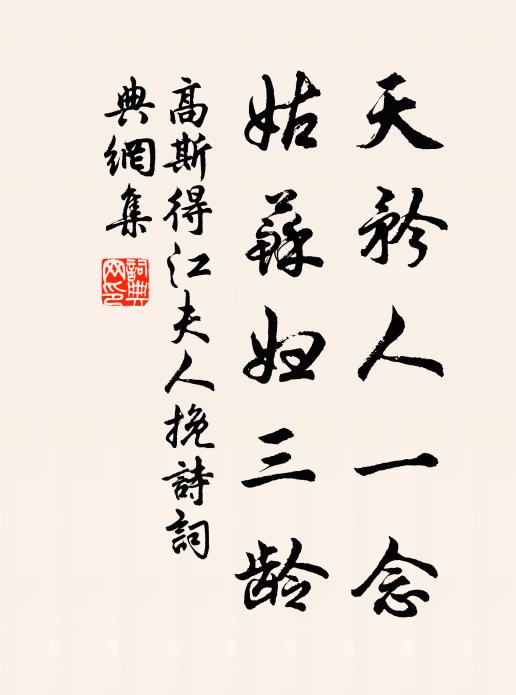 天矜人一念
姑蘇妇三龄
高斯得江夫人挽詩詞
典網集
詞典網印